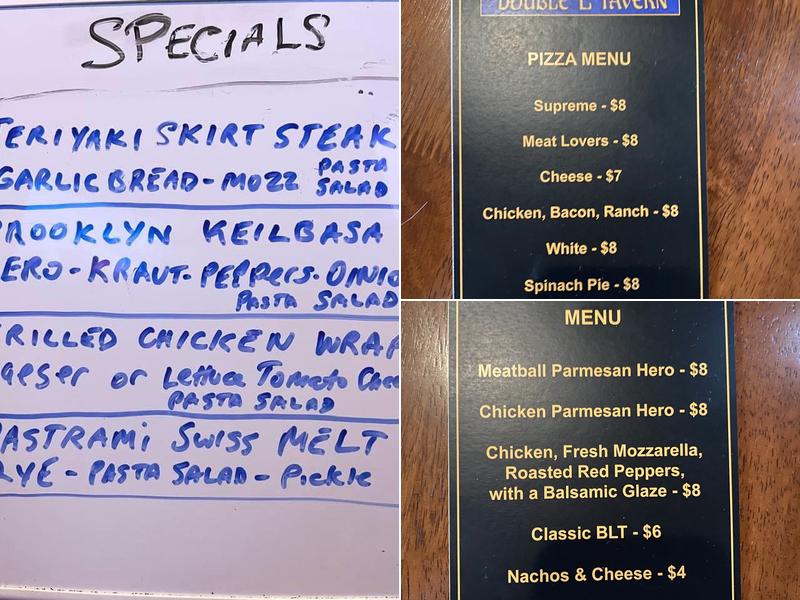 SPECIALS
TERIYAKI SKIRT STEAK
GARLIC BREAD - MOZZ PASTA SALAD
ROOKLYN KEILBASA
ERO - KRAUT - PEPPERS - ONIO
PASTA SALAD
RILLED CHICKEN WRAP
aeser or Lettuce Tomato Chee
PASTA SALAD
PASTRAMI SWISS MELT
RYE - PASTA SALAD - Pickle
DOUBLE L TAVERN
PIZZA MENU
Supreme - $8
Meat Lovers - $8
Cheese - $7
Chicken, Bacon, Ranch - $8
White - $8
Spinach Pie - $8
MENU
Meatball Parmesan Hero - $8
Chicken Parmesan Hero - $8
Chicken, Fresh Mozzarella,
Roasted Red Peppers,
with a Balsamic Glaze - $8
Classic BLT - $6
Nachos & Cheese - $4